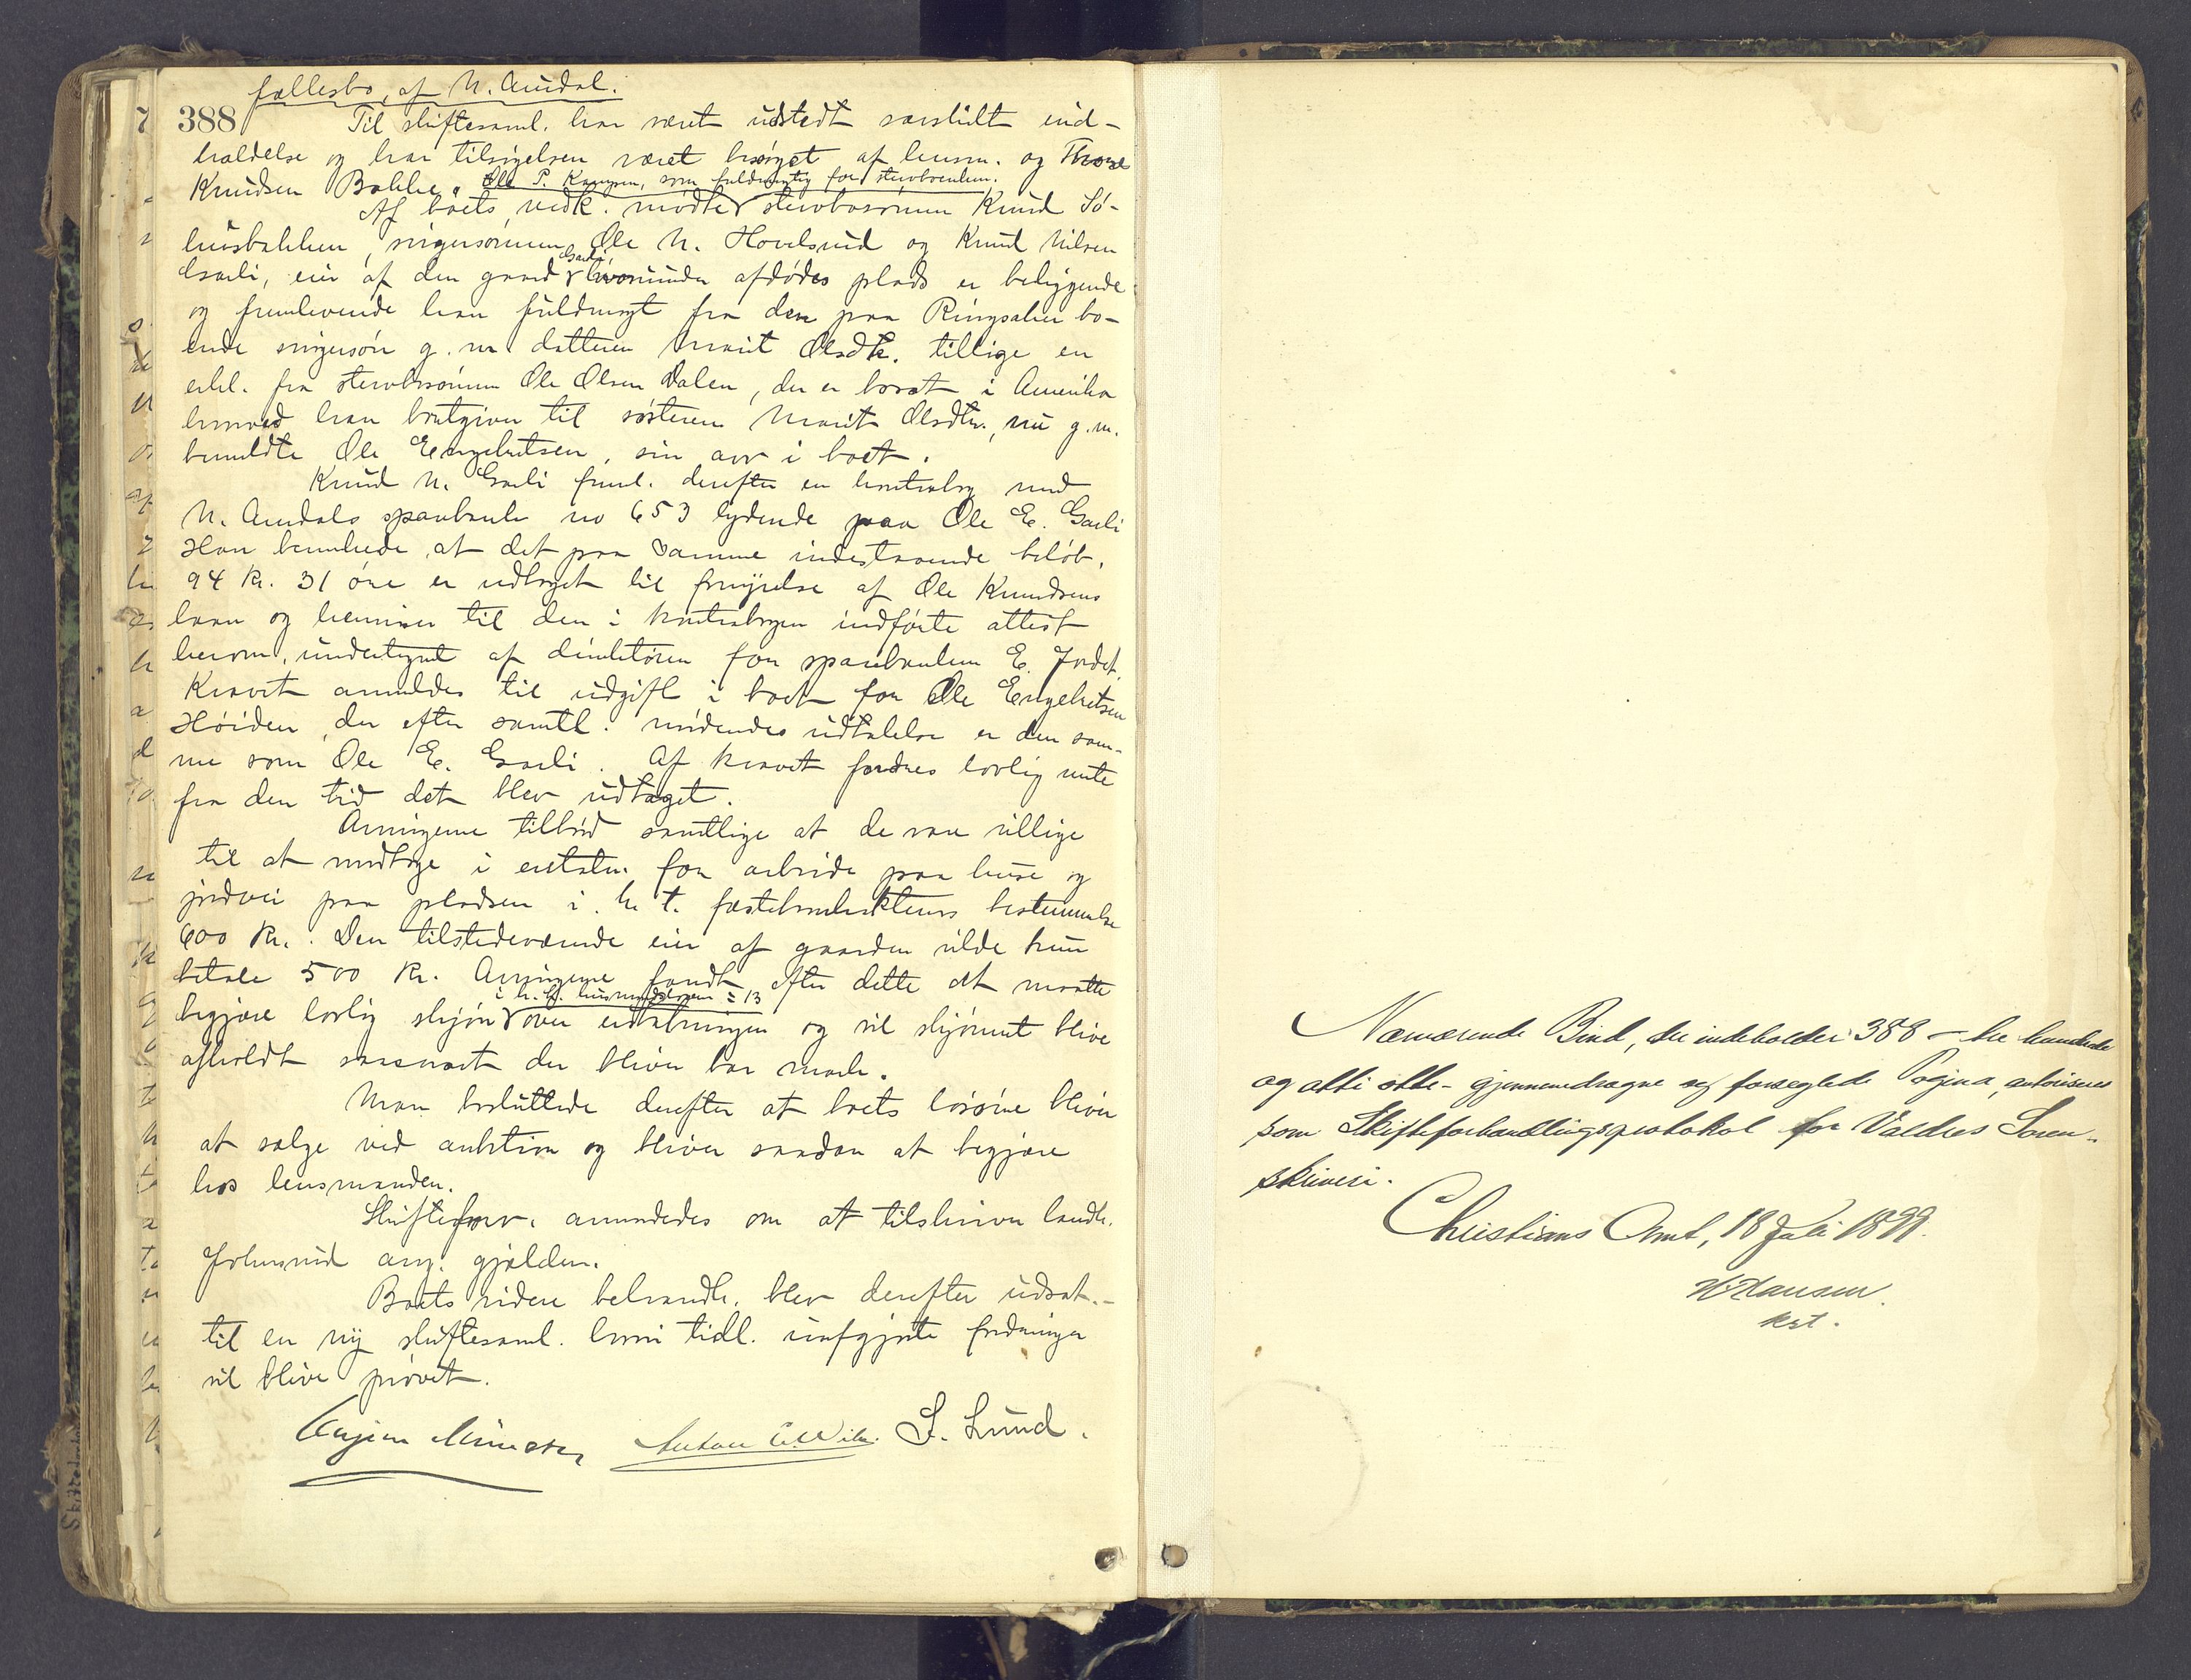 fællesbo, af N. Aurdal.
388
Til skiftesaml. har været udstedt særskilt ind-
kaldelse og har tilsigelsen været besørget af lensm. og Thore
Knudsen Bakke.
Ole P. Kampen, som fuldmægtig for stervboenken.
Af boets vedk. mødte stervbosønnen Knud Sø-
husbakken, svigersønnen Ole N. Hovelsrud og Knud Nilsen
Garli, eier af den gaard Garli hvorunder afdødes plads er beliggende
og fremlevende han fuldmagt fra den paa Ringsaker bo-
ende svigersøn g. m. datteren Marit Olsdtr. tillige en
erkl. fra stervbosønnen Ole Olsen Dalen, der er bosat i Amerika
hvorved han bortgiver til søsteren Marit Olsdtr., nu g. m.
bemeldte Ole Engebretsen, sin arv i boet.
Knud N. Garli freml. derefter en kontrabog med
N. Aurdals sparebank no 653 lydende paa Ole E. Garli
Han bemerkede, at det paa samme indestaaende beløb,
94 kr. 31 øre er udtaget til fornyelse af Ole Knudsens
laan og henviser til den i kontrabogen indførte attest
herom, undertegnet af direktøren for sparebanken E. Jordet.
Kravet anmeldes til udgift i boet for Ole Engebretsen
Høiden, der efter samtl. mødendes udtalelse er den sam-
me som Ole E. Garli. Af kravet fordres lovlig rente
fra den tid det blev udtaget.
Arvingerne tilbød samtlige at de var villige
til at modtage i erstatn. for arbeide paa huse og
jordvei paa pladsen i h. t. fæstekontraktens bestemmelse
600 kr. Den tilstedeværende eier af gaarden vilde kun
betale 500 kr. Arvingerne fandt efter dette at maatte
begjære lovlig skjøn i h. t. husmandsloven § 13 over erstatningen og vil skjønnet blive
afholdt saasnart der bliver bar mark.
Man besluttede derefter at boets løsøre bliver
at sælge ved auktion og bliver saadan at begjære
hos lensmanden.
Skifteforv. anmodedes om at tilskrive landh.
Johnsrud ang. gjælden.
Boets videre behandl. blev derefter udsat.-
til en ny skiftesaml. hvori tidl. uafgjorte fordringer
vil blive prøvet.
S. Lund.
Nærværende Bind, der indeholder 388 - tre hundrede
og otti otte - gjennemdragne og forseglede Pagina, autoriseres
som Skifteforhandlingsprotokol for Valdres Soren-
skriveri.
Christians Amt, 18 Juli 1899.
H Hansen
kst.